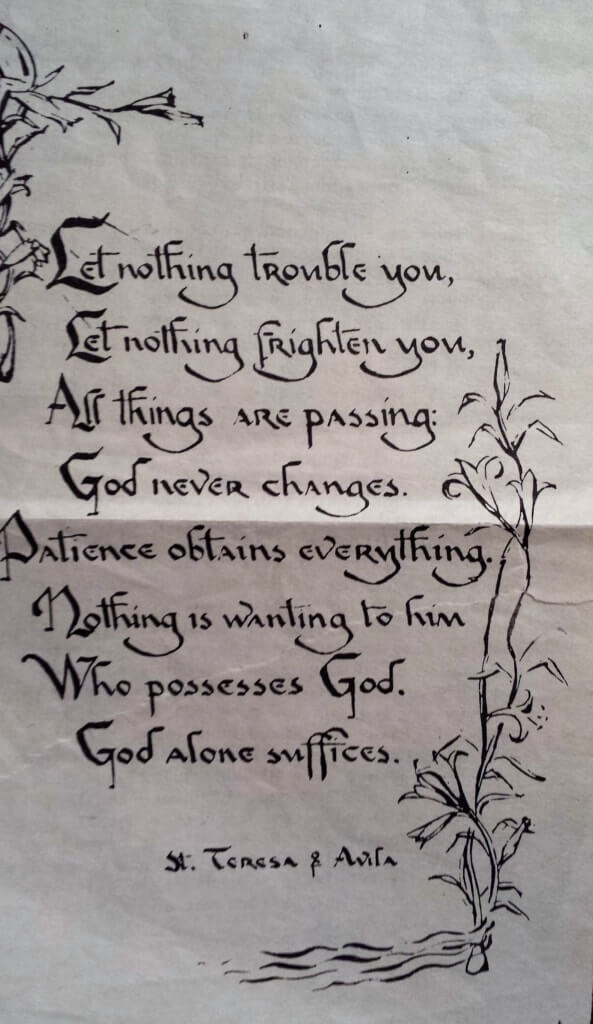 Let nothing trouble you,
Let nothing frighten you,
All things are passing:
God never changes.
Patience obtains everything.
Nothing is wanting to him
Who possesses God.
God alone suffices.
St. Teresa of Avila